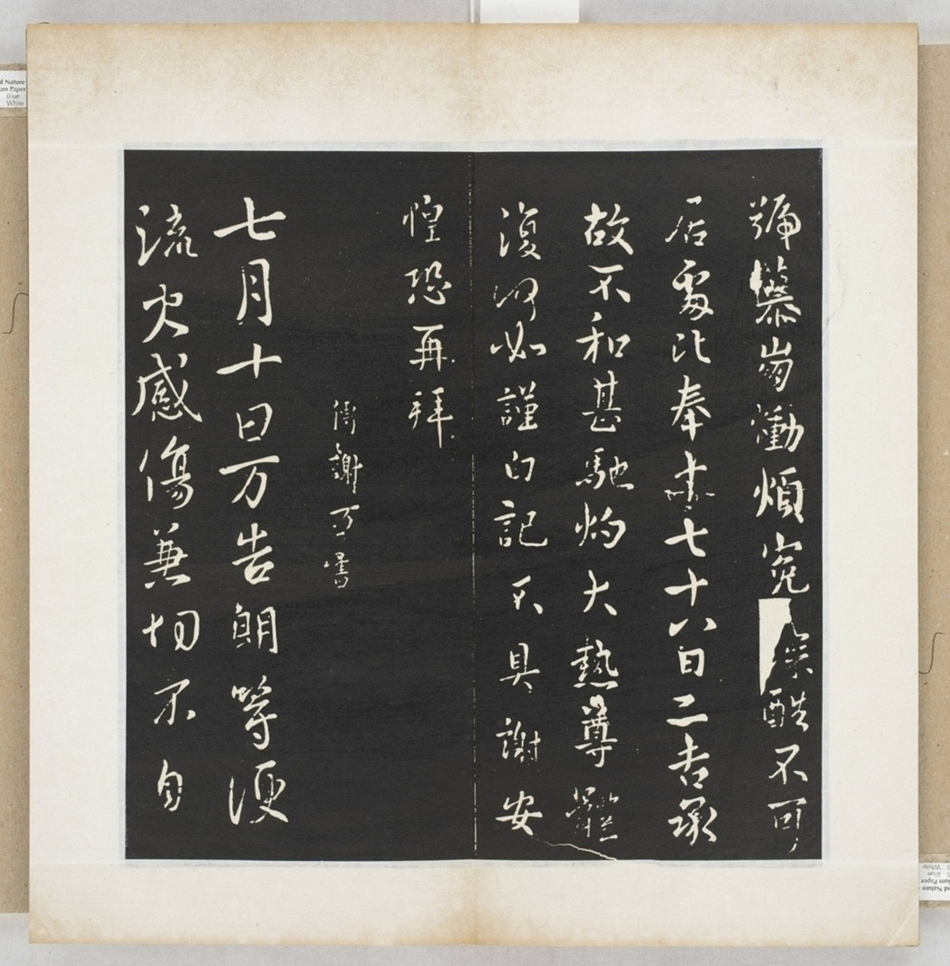 號慕崩慟煩冤深酷不可
居處比奉七十八日二告承
故不和甚馳灼大熱尊體
復何如謹白記不具謝安
惶恐再拜
謝万書
七月十日万告朗等便
流火感傷兼切不自
d Nature
um Paper
Blue
White